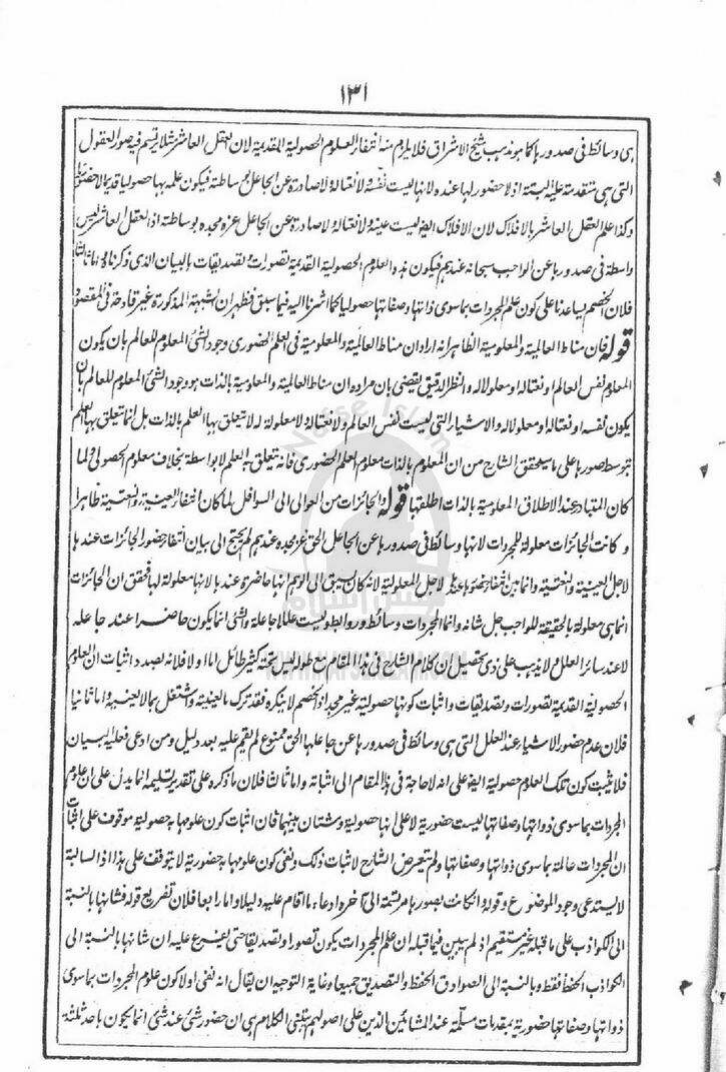 ١٣١
هى وسائط فى صدورها كما هو مذهب شيخ الاشراق فلا يلزم منه انتفاء العلوم الحصولية القديمة لان العقل العاشر مثلا يرتسم فيه صور العقول
التى هى متقدمة عليه البتة اذ لا حضور لها عنده لانها ليست نفسه ولا نعتا له ولا صادرة عن الجاعل بوساطته فيكون علمه بها حصوليا قديما لا حضوريا
وكذا علم العقل العاشر بالافلاك لان الافلاك ايضا ليست عينه ولا نعتا له ولا صادرة عن الجاعل عز مجده بوساطته اذ العقل العاشر ليس
واسطة فى صدورها عن الواجب سبحانه عندهم فيكون هذه العلوم الحصولية القديمة تصورات وتصديقات بالبيان الذى ذكرناه واما ثالثا
فلان الخصم يساعدنا على كون علم المجردات بما سوى ذاتها وصفاتها حصوليا كما اشرنا اليه فيما سبق فظهر ان الشبهة المذكورة غير قادحة فى المقصود
قوله فان مناط العالمية والمعلومية الظاهر انه اراد ان مناط العالمية والمعلومية فى العلم الحضورى وجود الشئ المعلوم للعالم بان يكون
المعلوم نفس العالم او نعتا له او معلولا له والنظر الدقيق يقضى بان مراده ان مناط العالمية والمعلومية بالذات هو وجود الشئ المعلوم للعالم بان
يكون نفسه او نعتا له او معلولا له والاشياء التى ليست نفس العالم ولا نعتا له ولا معلولة له لا تتعلق بها العلم بالذات بل انما تتعلق بها العلم
بتوسط صورها على ما سيحقق الشارح من ان المعلوم بالذات معلوم العلم الحضورى فانه تتعلق به العلم لا بواسطة بخلاف معلوم الحصولى ولما
كان المتبادر عند الاطلاق المعلومية بالذات اطلقها قوله والجائزات من العوالى الى السوافل لما كان انتفاء العينية والنعتية ظاهرا
وكانت الجائزات معلولة للمجردات لانها وسائط فى صدورها عن الجاعل الحق عز مجده عندهم لم يحتج الى بيان انتفاء حضور الجائزات عندها
لاجل العينية والنعتية وانما بين انتفاء حضورها عندها لاجل المعلولية لانه كان يسبق الى الوهم انها حاضرة عندها لانها معلولة لها فحقق ان الجائزات
انما هى معلولة بالحقيقة للواجب جل شانه وانما المجردات وسائط وروابط وليست عللا جاعلة والشئ انما يكون حاضرا عند جاعله
لا عند سائر العلل ولا يذهب على ذى تحصيل ان كلام الشارح فى هذا المقام مع طوله ليس تحته كثير طائل اما اولا فلانه بصدد اثبات ان العلوم
الحصولية القديمة تصورات وتصديقات واثبات كونها حصولية غير مجد اذ الخصم لا ينكره فقد ترك ما يعنيه واشتغل بما لا يعنيه واما ثانيا
فلان عدم حضور الاشياء عند العلل التى هى وسائط فى صدورها عن جاعلها الحق ممنوع لم يقم عليه بعد دليل ومن ادعى فعليه البيان
فلا يثبت كون تلك العلوم حصولية ايضا على انه لا حاجة فى هذا المقام الى اثباته واما ثالثا فلان ما ذكره على تقدير تسليمه انما يدل على ان علوم
المجردات بما سوى ذواتها وصفاتها ليست حضورية لا على انها حصولية وشتان بينهما فان اثبات كون علومها حصولية موقوف على اثبات
ان المجردات عالمة بما سوى ذواتها وصفاتها ولم يتعرض الشارح لاثبات ذلك ونفى كون علومها به حضورية لا يتوقف على هذا اذ السالبة
لا يستدعى وجود الموضوع وقوله وان كانت بصورها مرتسمة الى آخره ادعاء ما اقام عليه دليلا واما رابعا فلان تفريع قوله فشانها بالنسبة
الى الكواذب على ما قبله غير مستقيم اذ لم يبين فيما قبله ان علم المجردات يكون تصورا وتصديقا حتى يفرع عليه ان شانها بالنسبة الى
الكواذب الحفظ فقط وبالنسبة الى الصوادق الحفظ والتصديق جميعا وغاية التوجيه ان يقال انه نفى اولا كون علوم المجردات بما سوى
ذواتها وصفاتها حضورية بمقدمات مسلمة عند المشائين الذين على اصولهم يبتنى الكلام هى ان حضور شئ عند شئ انما يكون باحد ثلثة